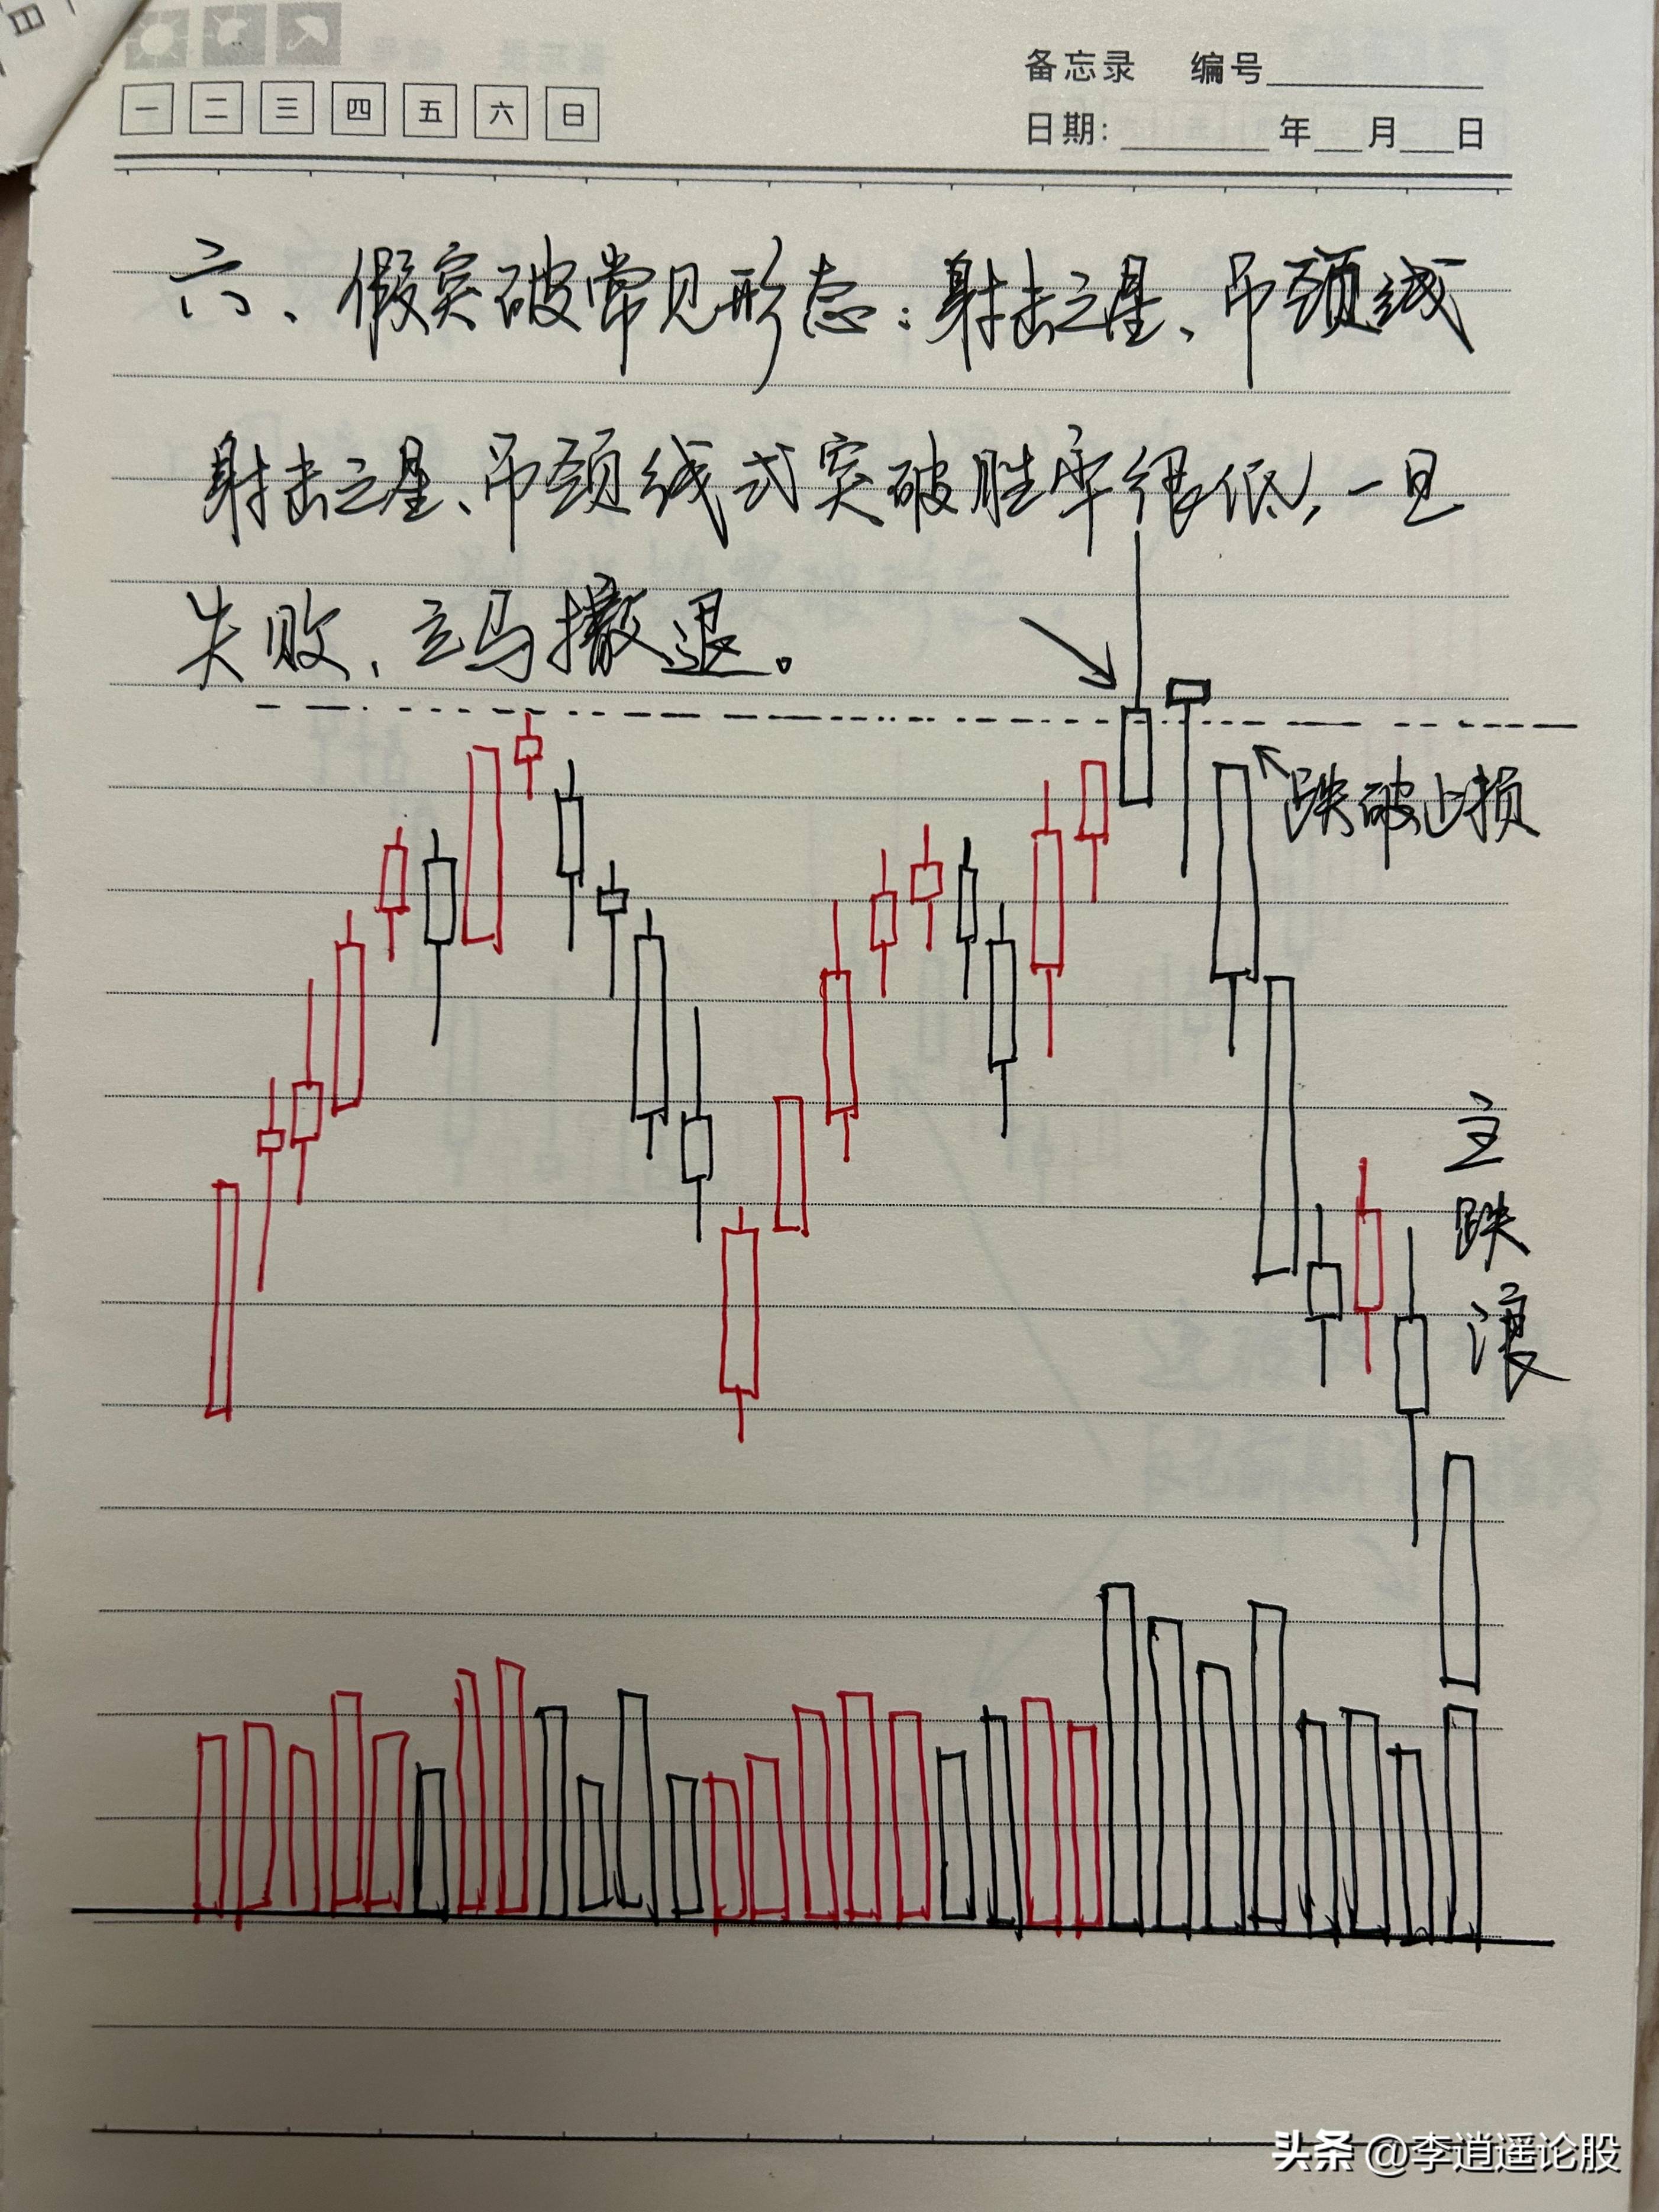 备忘录 编号
一 二 三 四 五 六 日
日期: 年 月 日
六、假突破常见形态：射击之星、吊颈线
射击之星、吊颈线式突破胜率很低，一旦
失败、立马撤退。
跌破止损
主跌浪
头条 @李逍遥论股